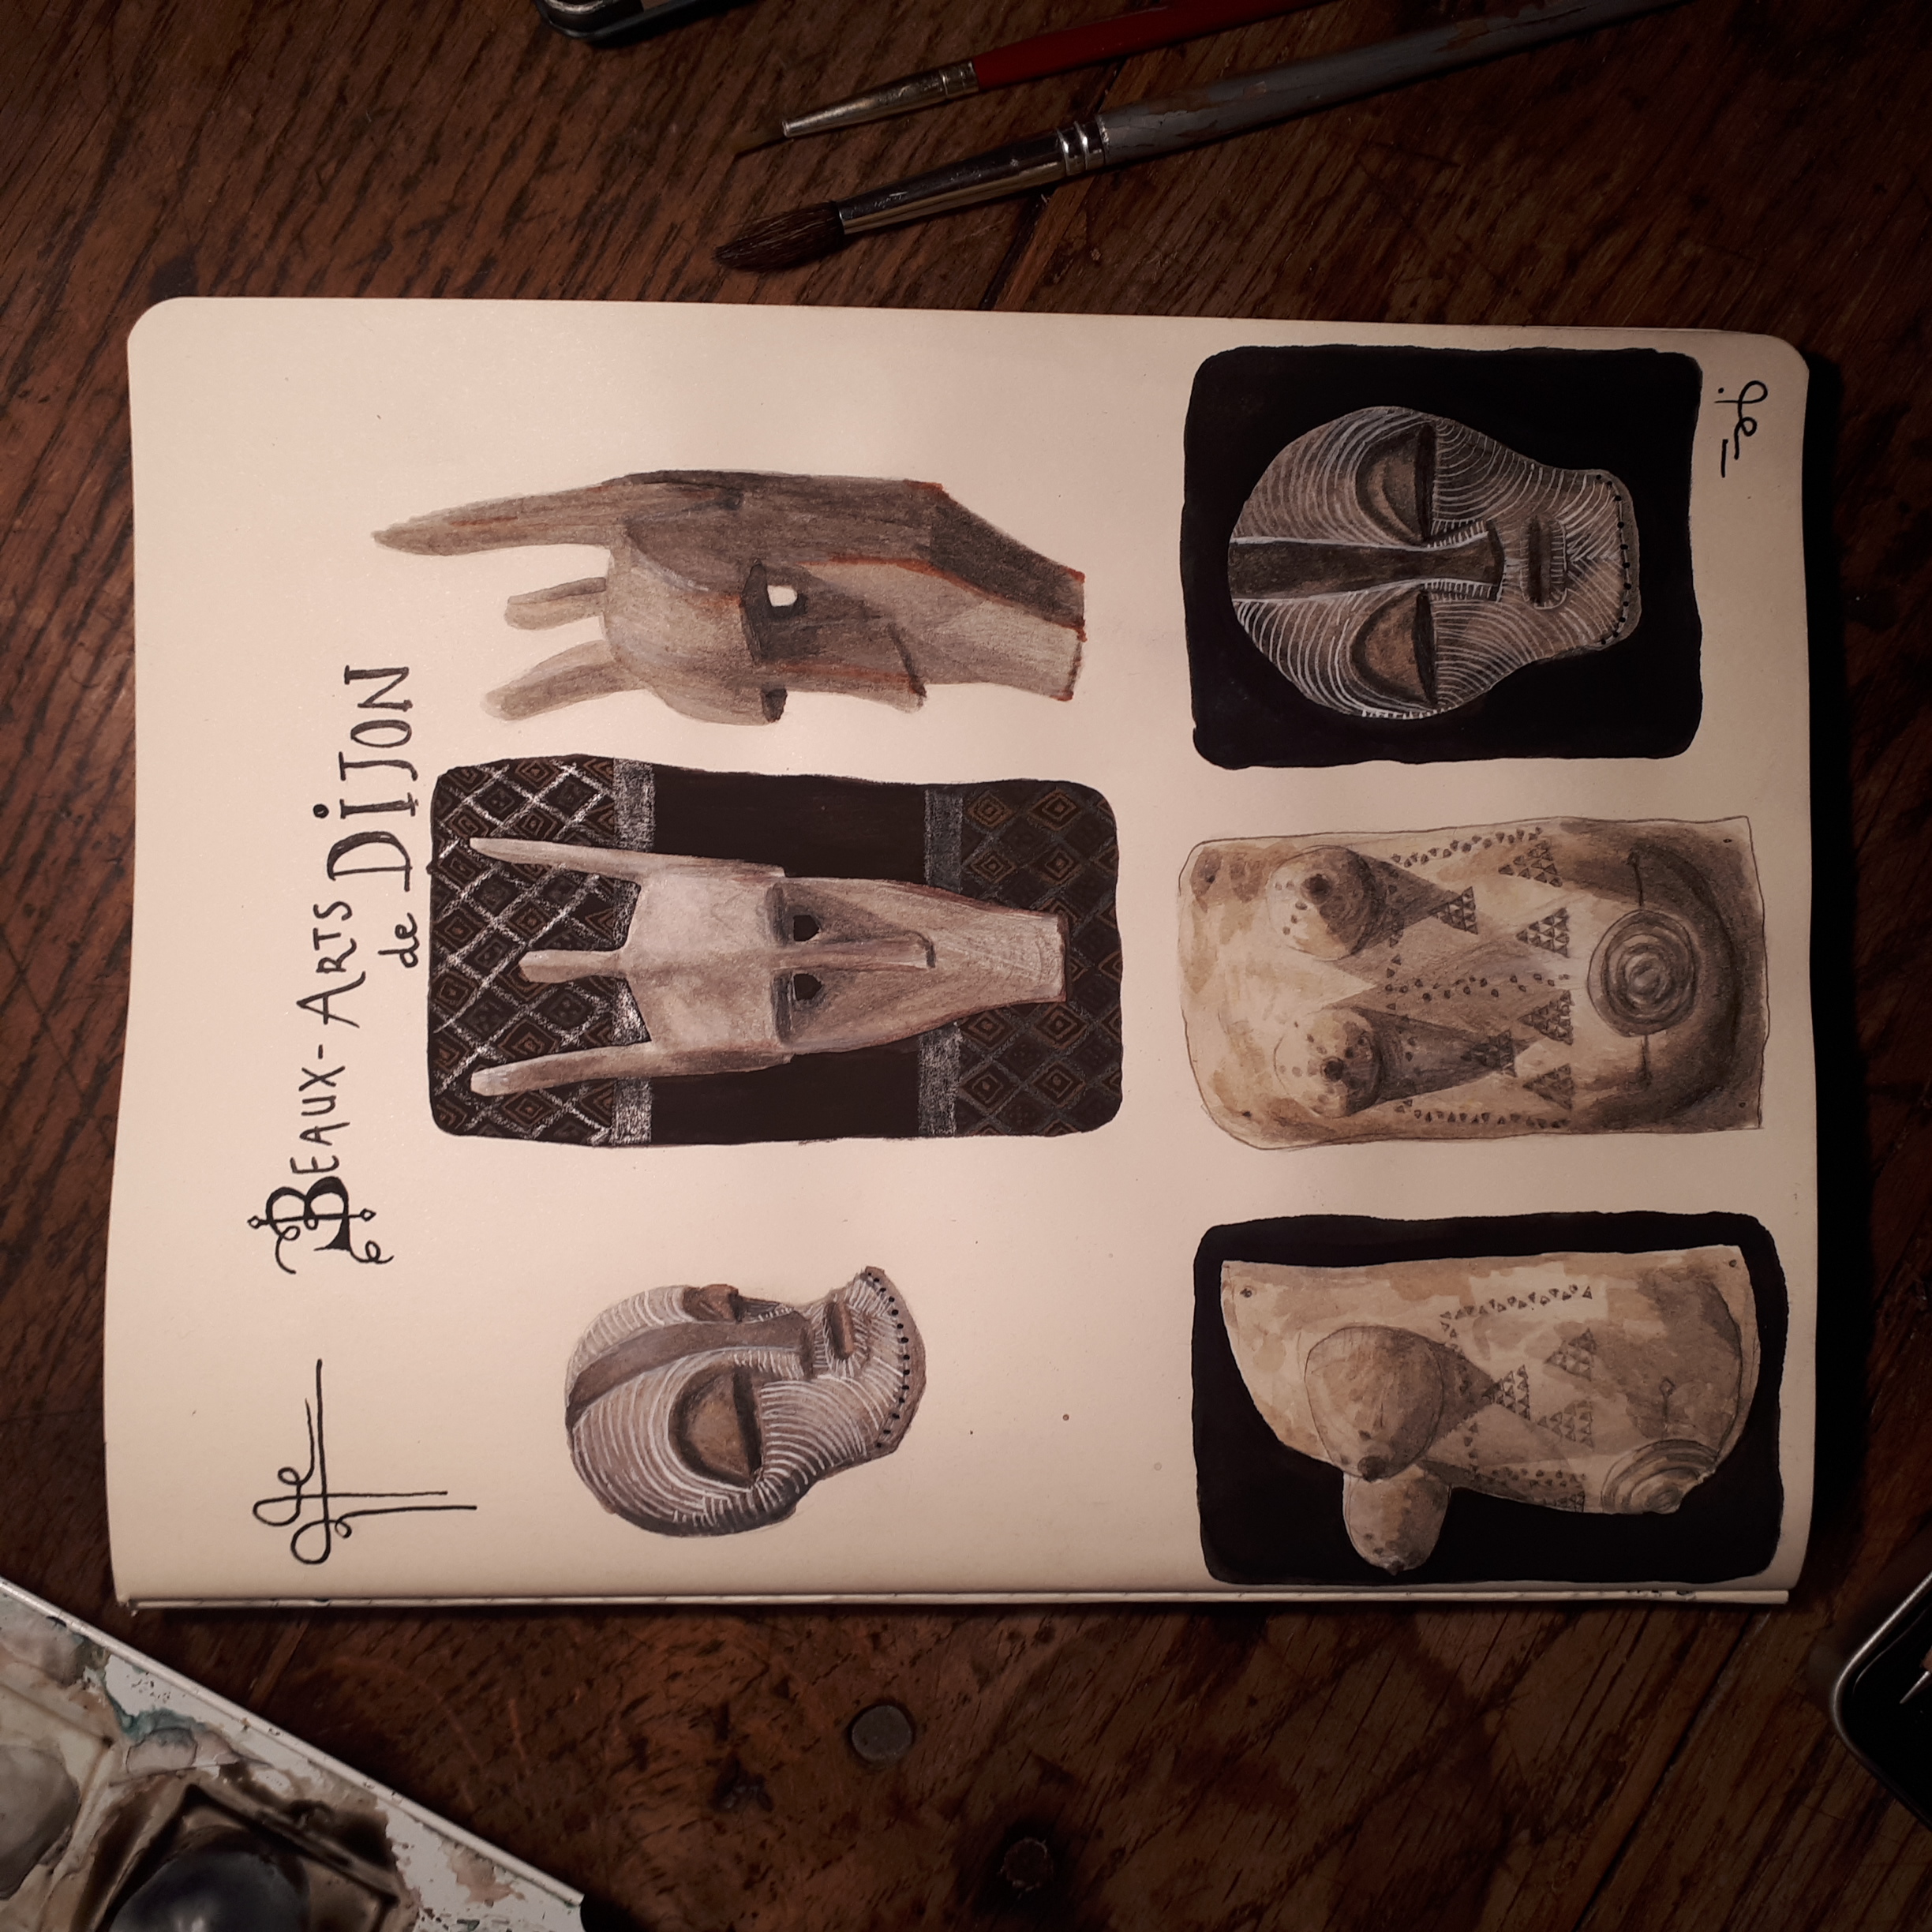 BEAUX-ARTS
de DiJON